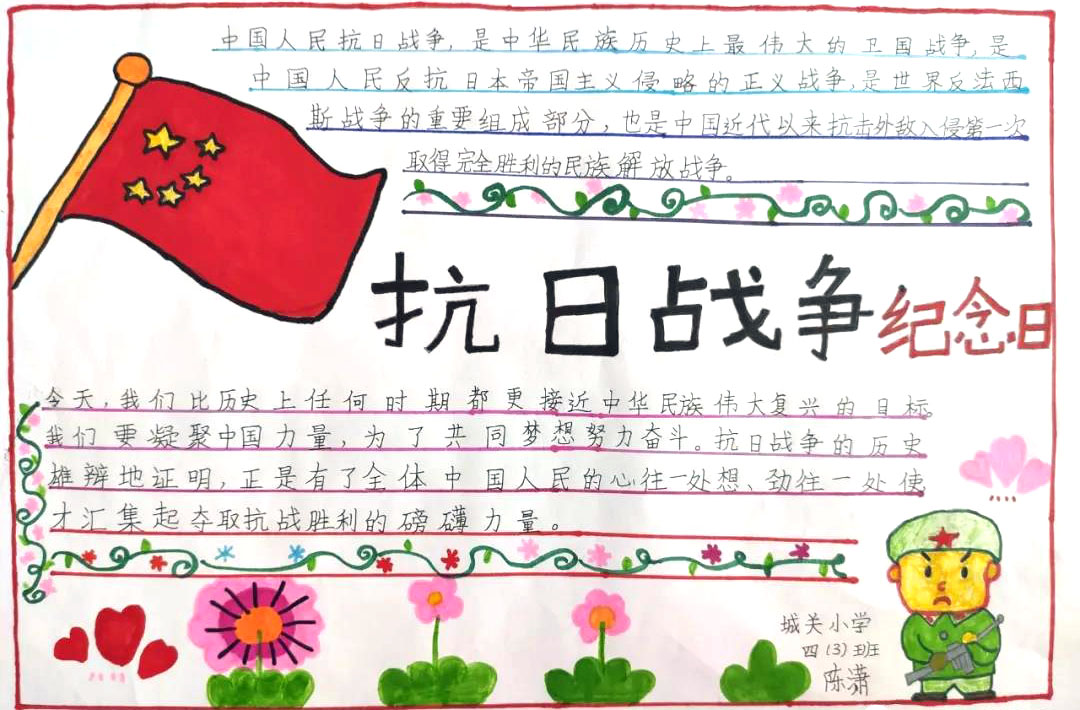 中国人民抗日战争,是中华民族历史上最伟大的卫国战争,是
中国人民反抗日本帝国主义侵略的正义战争,是世界反法西
斯战争的重要组成部分,也是中国近代以来抗击外敌入侵第一次
取得完全胜利的民族解放战争。
抗日战争纪念日
今天,我们比历史上任何时期都更接近中华民族伟大复兴的目标。
我们要凝聚中国力量,为了共同梦想努力奋斗。抗日战争的历史
雄辩地证明,正是有了全体中国人民的心往一处想、劲往一处使
才汇集起夺取抗战胜利的磅礴力量。
城关小学
四(3)班
陈潇